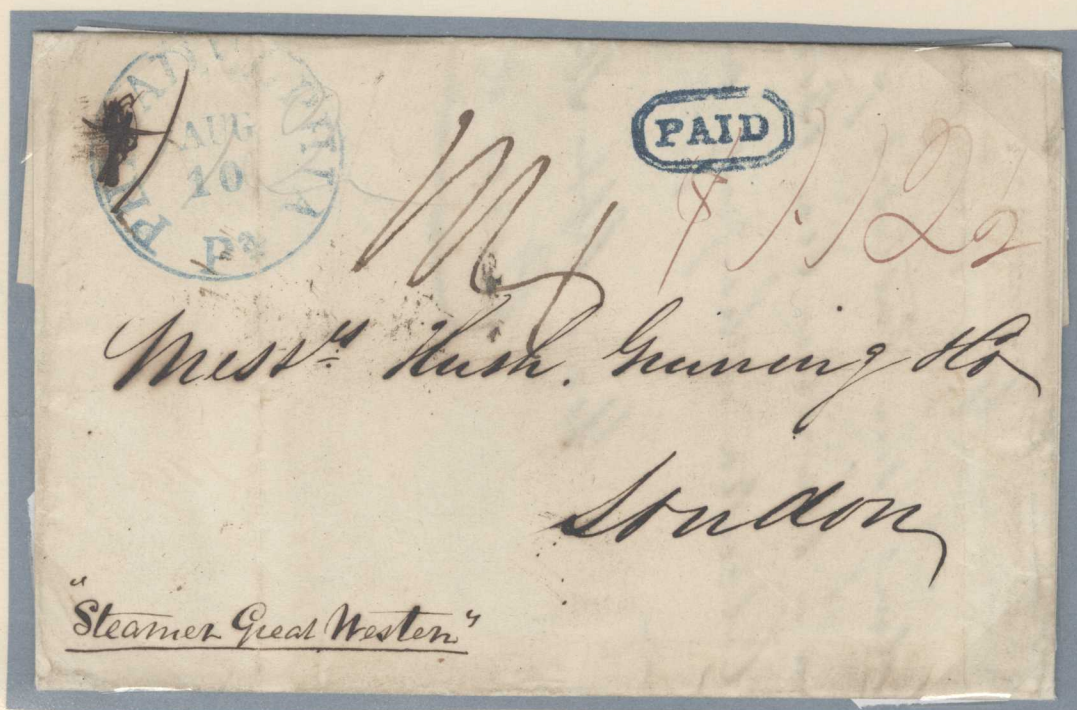 PHILADELPHIA
AUG
10
Pa
PAID
$1.12½
Messrs Huth. Gruning & Co
London
"Steamer Great Western"